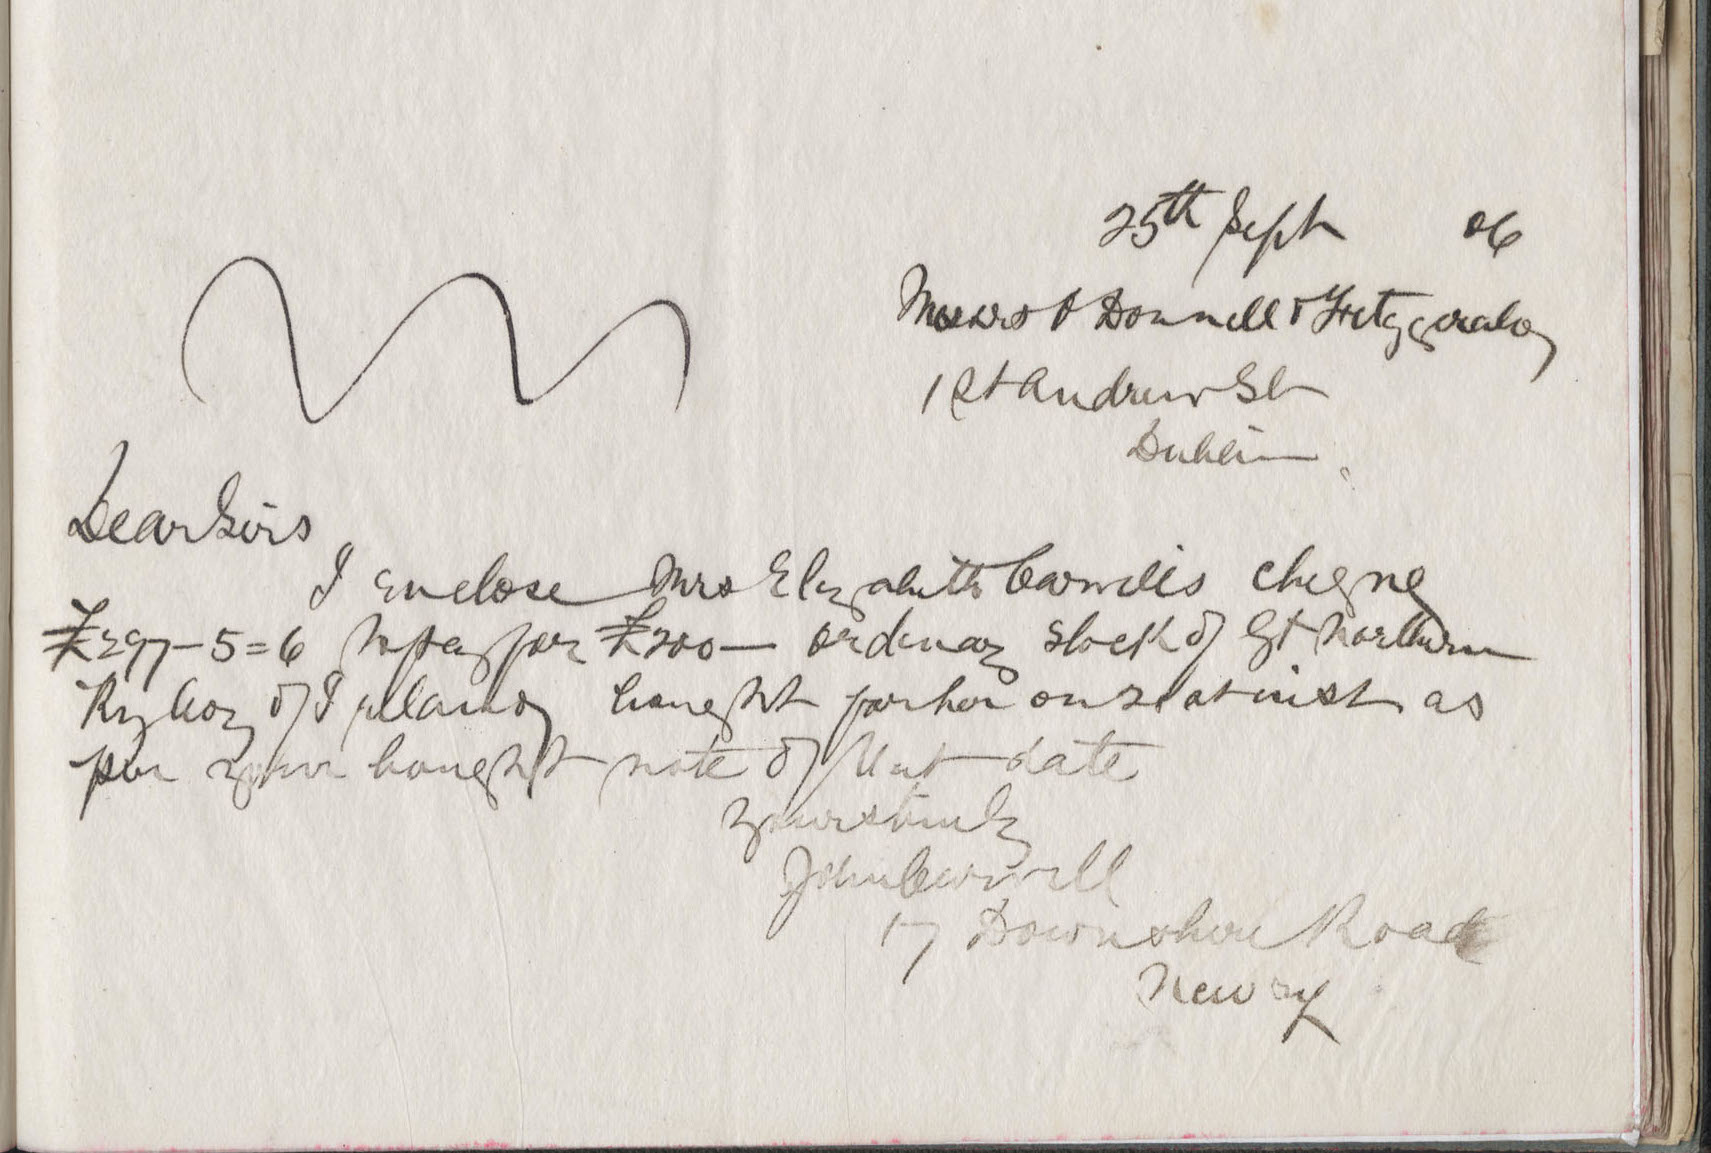 25th Sept 06
Messrs O Donnell & Fitzgerald
1 St Andrew St
Dublin
Dear Sirs
I enclose Mrs Elizabeth cheque
£297-5=6 to pay for £200— ordinary stock of Gt Northern
Ry Coy of Ireland bought for her on 21st inst as
per your bought note of that date
Yours truly
John
17 Downshire Road
Newry